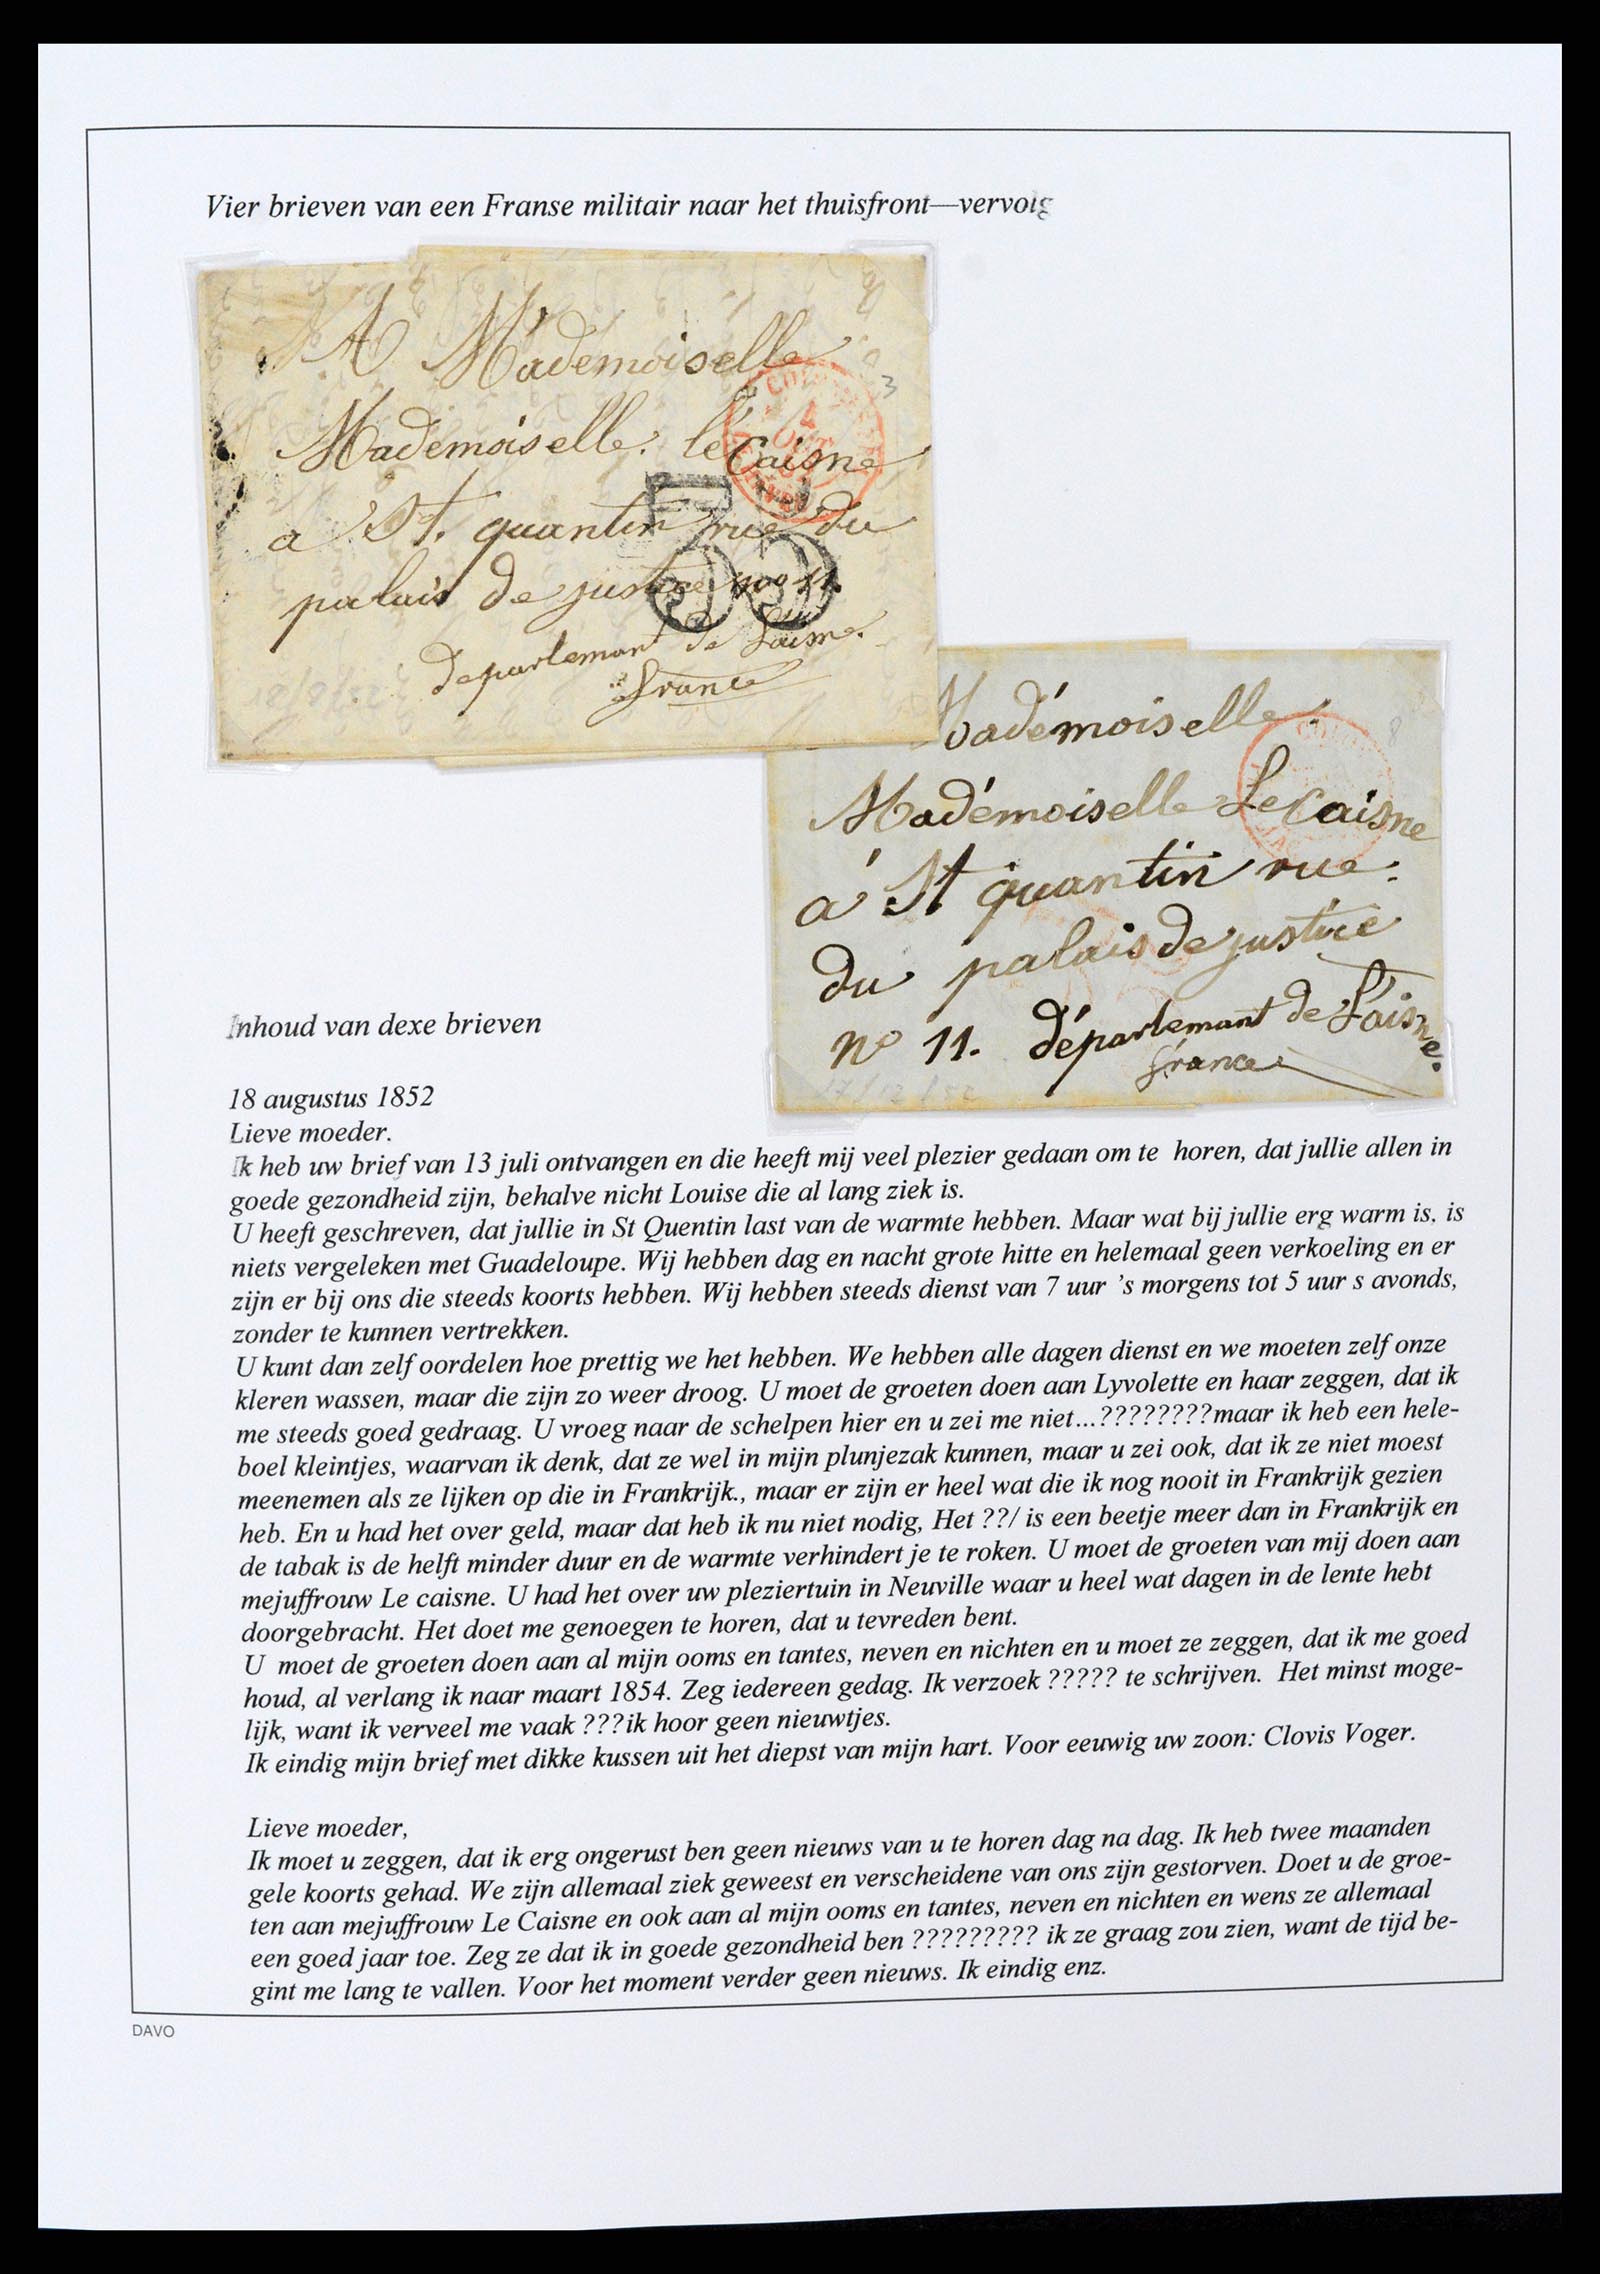 Vier brieven van een Franse militair naar het thuisfront—vervolg
A Mademoiselle
Mademoiselle. leCaisne
a St. quantin rue du
palais de justice no 11.
departemant de L'aisne.
france
3
Madémoiselle.
Madémoiselle LeCaisne
á St quantin rue.
du palais de justice
no 11. départemant de L'aisne.
france
8
17/12/52
Inhoud van dexe brieven
18 augustus 1852
Lieve moeder.
Ik heb uw brief van 13 juli ontvangen en die heeft mij veel plezier gedaan om te horen, dat jullie allen in
goede gezondheid zijn, behalve nicht Louise die al lang ziek is.
U heeft geschreven, dat jullie in St Quentin last van de warmte hebben. Maar wat bij jullie erg warm is, is
niets vergeleken met Guadeloupe. Wij hebben dag en nacht grote hitte en helemaal geen verkoeling en er
zijn er bij ons die steeds koorts hebben. Wij hebben steeds dienst van 7 uur 's morgens tot 5 uur s avonds,
zonder te kunnen vertrekken.
U kunt dan zelf oordelen hoe prettig we het hebben. We hebben alle dagen dienst en we moeten zelf onze
kleren wassen, maar die zijn zo weer droog. U moet de groeten doen aan Lyvolette en haar zeggen, dat ik
me steeds goed gedraag. U vroeg naar de schelpen hier en u zei me niet...????????maar ik heb een hele-
boel kleintjes, waarvan ik denk, dat ze wel in mijn plunjezak kunnen, maar u zei ook, dat ik ze niet moest
meenemen als ze lijken op die in Frankrijk., maar er zijn er heel wat die ik nog nooit in Frankrijk gezien
heb. En u had het over geld, maar dat heb ik nu niet nodig, Het ??/ is een beetje meer dan in Frankrijk en
de tabak is de helft minder duur en de warmte verhindert je te roken. U moet de groeten van mij doen aan
mejuffrouw Le caisne. U had het over uw pleziertuin in Neuville waar u heel wat dagen in de lente hebt
doorgebracht. Het doet me genoegen te horen, dat u tevreden bent.
U moet de groeten doen aan al mijn ooms en tantes, neven en nichten en u moet ze zeggen, dat ik me goed
houd, al verlang ik naar maart 1854. Zeg iedereen gedag. Ik verzoek ????? te schrijven. Het minst moge-
lijk, want ik verveel me vaak ???ik hoor geen nieuwtjes.
Ik eindig mijn brief met dikke kussen uit het diepst van mijn hart. Voor eeuwig uw zoon: Clovis Voger.
Lieve moeder,
Ik moet u zeggen, dat ik erg ongerust ben geen nieuws van u te horen dag na dag. Ik heb twee maanden
gele koorts gehad. We zijn allemaal ziek geweest en verscheidene van ons zijn gestorven. Doet u de groe-
ten aan mejuffrouw Le Caisne en ook aan al mijn ooms en tantes, neven en nichten en wens ze allemaal
een goed jaar toe. Zeg ze dat ik in goede gezondheid ben ????????? ik ze graag zou zien, want de tijd be-
gint me lang te vallen. Voor het moment verder geen nieuws. Ik eindig enz.
DAVO